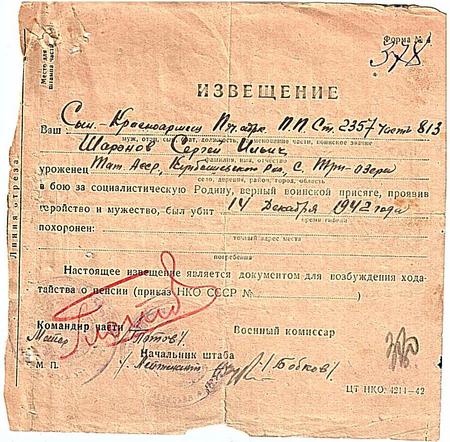 Форма №
378
Место для штампа части
Линия отреза
ИЗВЕЩЕНИЕ
Ваш Сын - Красноармеец П.П.Ст. 2357 часть 813
муж, отец, сын, брат, должность, наименование части, воинское звание
Шаронов Сергей Ильич
фамилия, имя, отчество
уроженец Тат Асср, Куйбышевский Рай, с. Три-Озера
село, деревня, район, город, область
в бою за социалистическую Родину, верный воинской присяге, проявив
геройство и мужество, был убит 14 Декабря 1942 года
время гибели
похоронен:
точный адрес места
погребения
Настоящее извещение является документом для возбуждения хода-
тайства о пенсии (приказ НКО СССР №
Командир части
Военный комиссар
Майор
Начальник штаба
М. П.
Лейтенант /Бобков/
ЦТ НКО. 4211—42